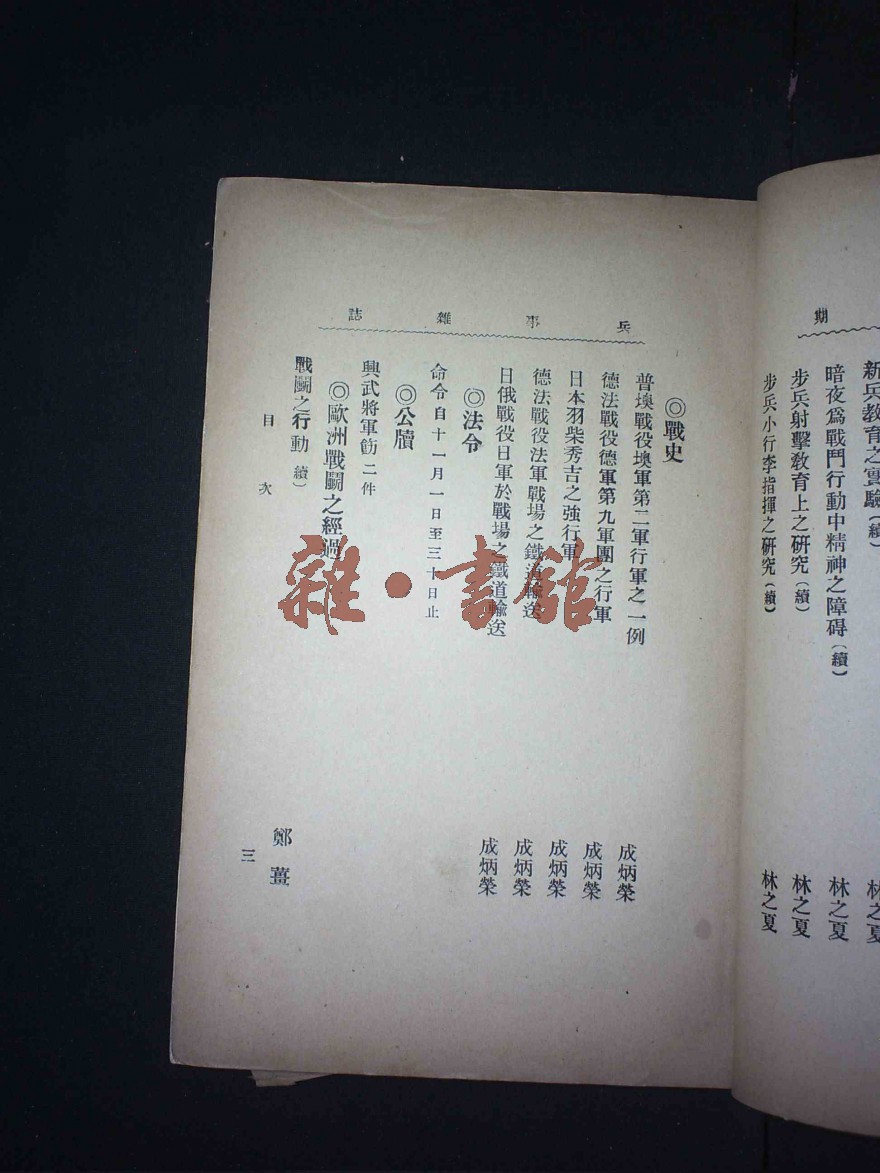 期
新兵教育之實驗（續） 林之夏
暗夜爲戰鬥行動中精神之障碍（續） 林之夏
步兵射擊教育上之研究（續） 林之夏
步兵小行李指揮之研究（續） 林之夏
兵事雜誌
◎戰史
普墺戰役墺軍第二軍行軍之一例 成炳榮
德法戰役德軍第九軍團之行軍 成炳榮
日本羽柴秀吉之強行軍 成炳榮
德法戰役法軍戰場之鐵道輸送 成炳榮
日俄戰役日軍於戰場之鐵道輸送 成炳榮
◎法令
命令自十一月一日至三十日止
◎公牘
興武將軍飭二件
◎歐洲戰鬭之經過
戰鬭之行動（續） 鄭薑
目次
三
雜·書館